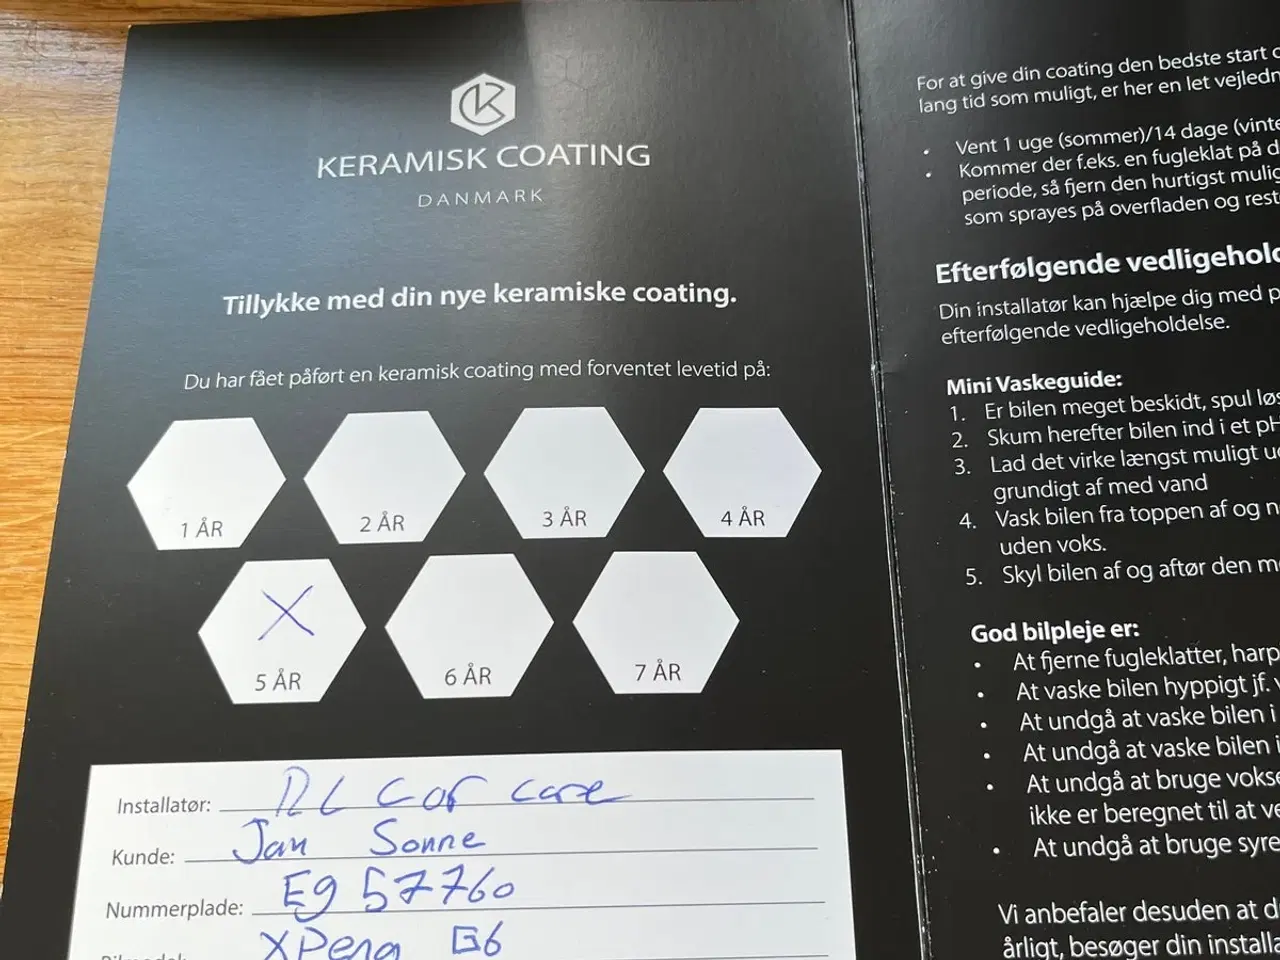 KERAMISK COATING
DANMARK
Tillykke med din nye keramiske coating.
Du har fået påført en keramisk coating med forventet levetid på:
1 ÅR
2 ÅR
3 ÅR
4 ÅR
X
5 ÅR
6 ÅR
7 ÅR
Installatør: RL Car care
Kunde: Jan Sonne
Nummerplade: Eg 57760
XPeng G6
For at give din coating den bedste start
lang tid som muligt, er her en let
• Vent 1 uge (sommer)/14 dage
• Kommer der f.eks. en fugleklat på
periode, så fjern den hurtigst
som sprayes på overfladen og
Efterfølgende
Din installatør kan hjælpe dig med
efterfølgende vedligeholdelse.
Mini Vaskeguide:
1. Er bilen meget beskidt, spul
2. Skum herefter bilen ind i et
3. Lad det virke længst muligt
grundigt af med vand
4. Vask bilen fra toppen af og
uden voks.
5. Skyl bilen af og aftør den
God bilpleje er:
• At fjerne fugleklatter,
• At vaske bilen hyppigt jf.
• At undgå at vaske bilen i
• At undgå at vaske bilen
• At undgå at bruge
ikke er beregnet til at
• At undgå at bruge
Vi anbefaler desuden at
årligt, besøger din